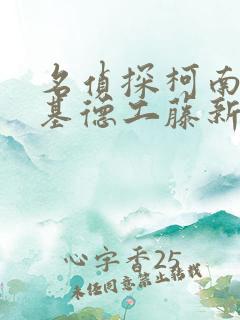 名侦探柯南
基德工藤新
心字香25
未经同意禁止转载